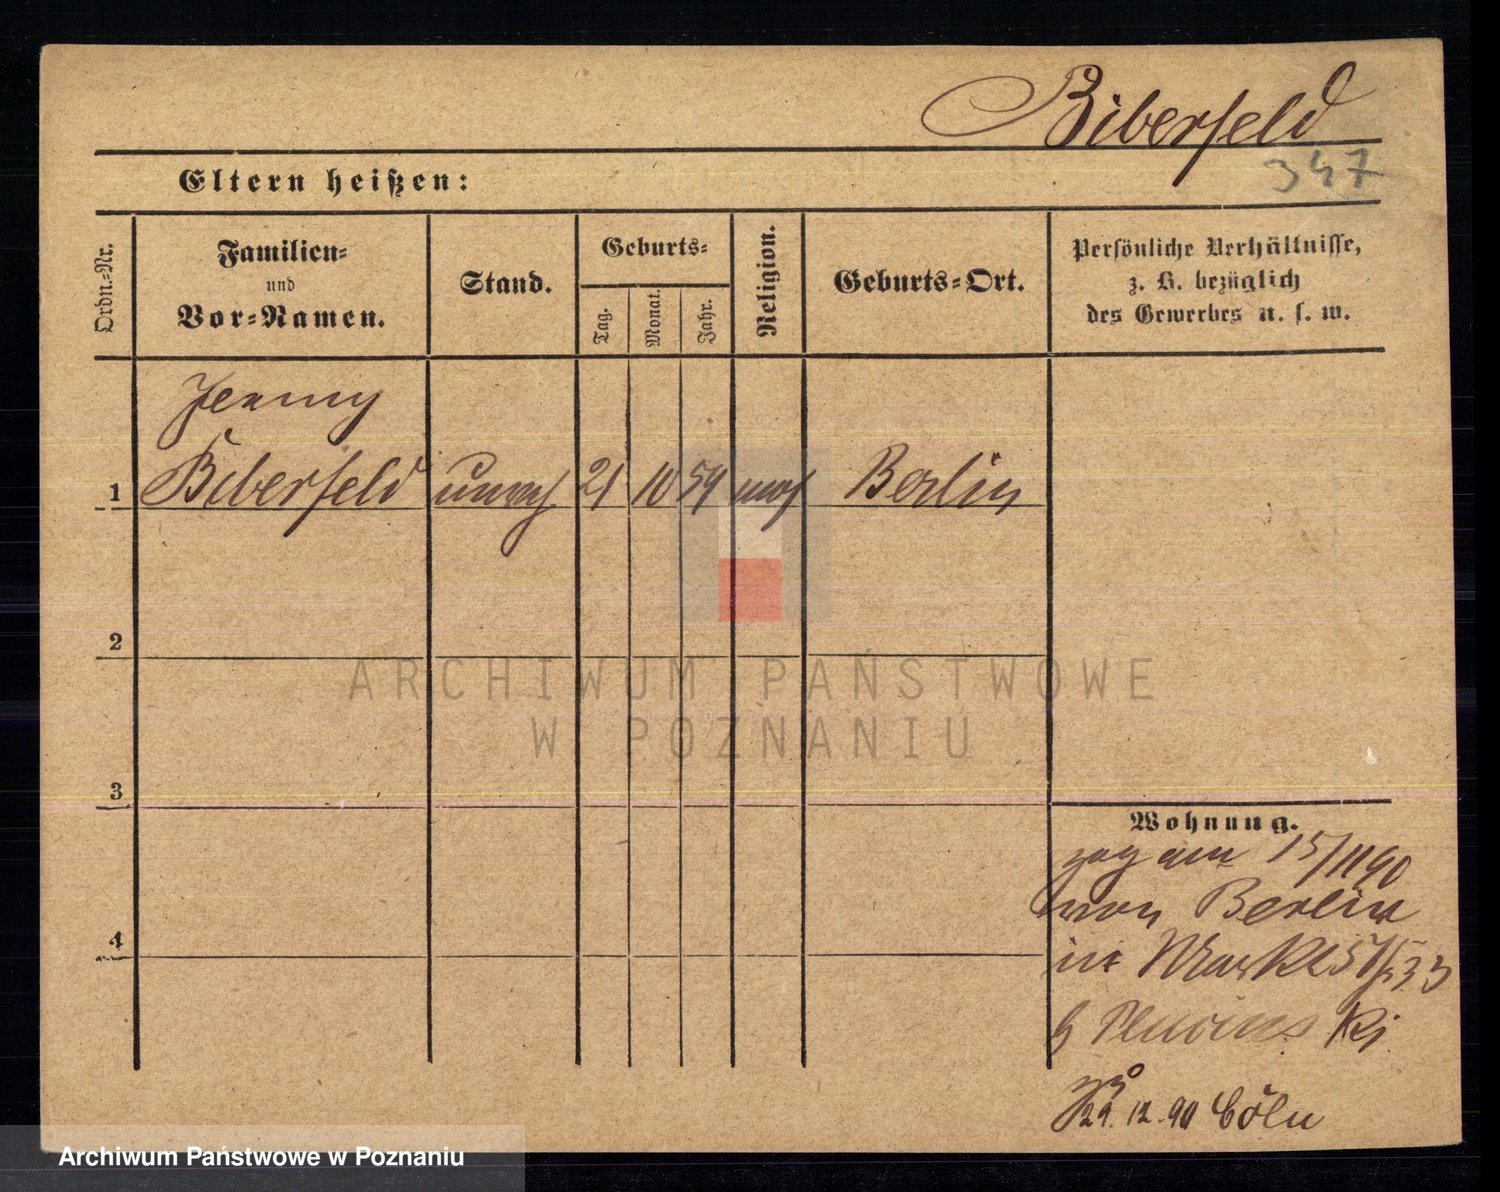 Biberfeld
347
Eltern heißen:
Ordn.-Nr.
Familien-
und
Vor-Namen.
Stand.
Geburts-
Tag.
Monat.
Jahr.
Religion.
Geburts-Ort.
Persönliche Verhältnisse,
z. B. bezüglich
des Gewerbes u. s. w.
Jenny
1 Biberfeld unver 21 10 54 mos Berlin
2
3
4
Wohnung.
zog am 15/11 90
von Berlin
in Markt
29. 12. 90 Cöln
ARCHIWUM PAŃSTWOWE
W POZNANIU
Archiwum Państwowe w Poznaniu